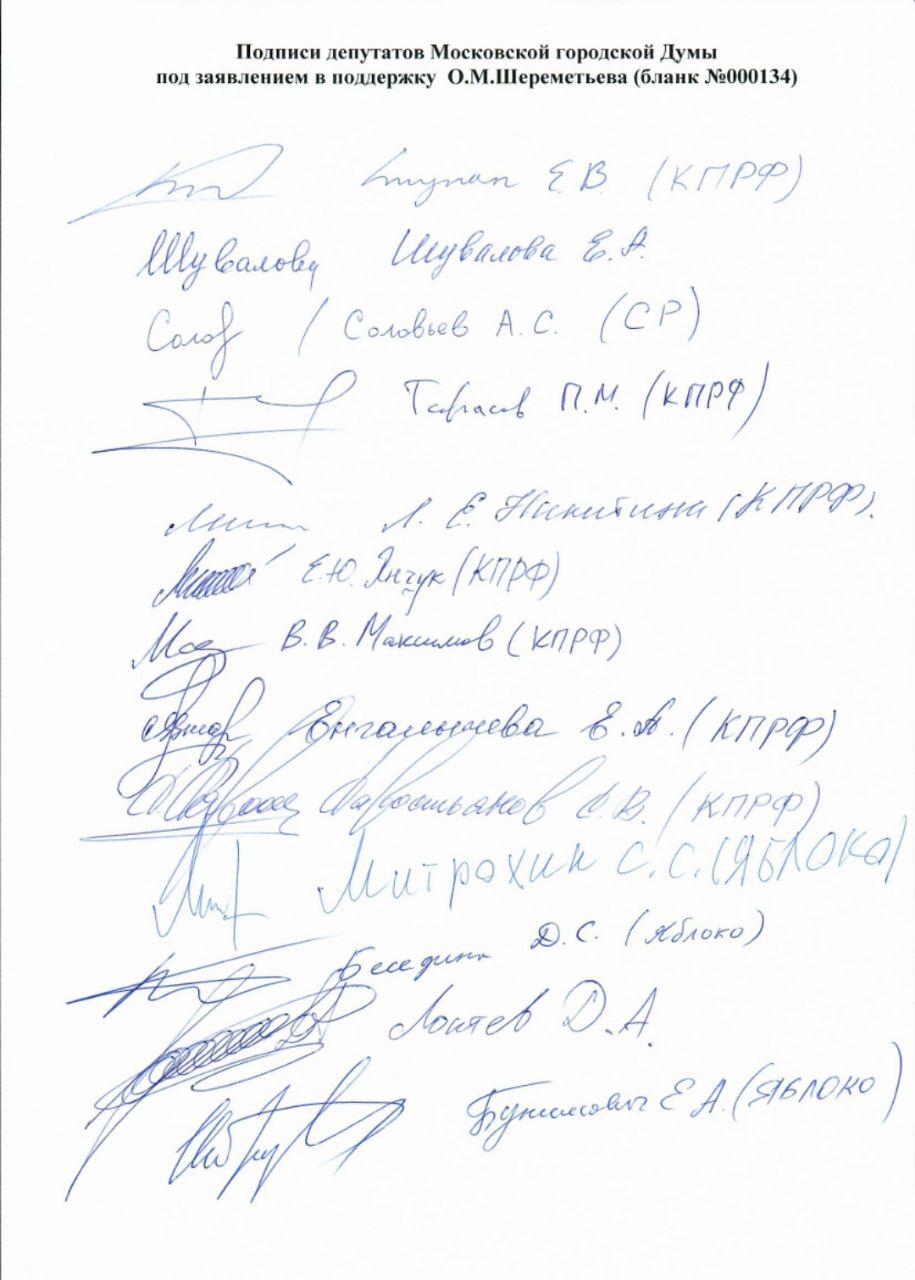 Подписи депутатов Московской городской Думы
под заявлением в поддержку О.М.Шереметьева (бланк №000134)
Ступин Е.В. (КПРФ)
Шувалова Шувалова Е.А.
Солов / Соловьев А.С. (СР)
Тарасов П.М. (КПРФ)
Л. Е. Никитина (КПРФ).
Е.Ю. Янчук (КПРФ)
В.В. Максимов (КПРФ)
Енгалычева Е.А. (КПРФ)
Савостьянов С.В. (КПРФ)
Митрохин С.С. (ЯБЛОКО)
Беседина Д.С. (Яблоко)
Локтев Д.А.
Бунимович Е.А. (ЯБЛОКО)